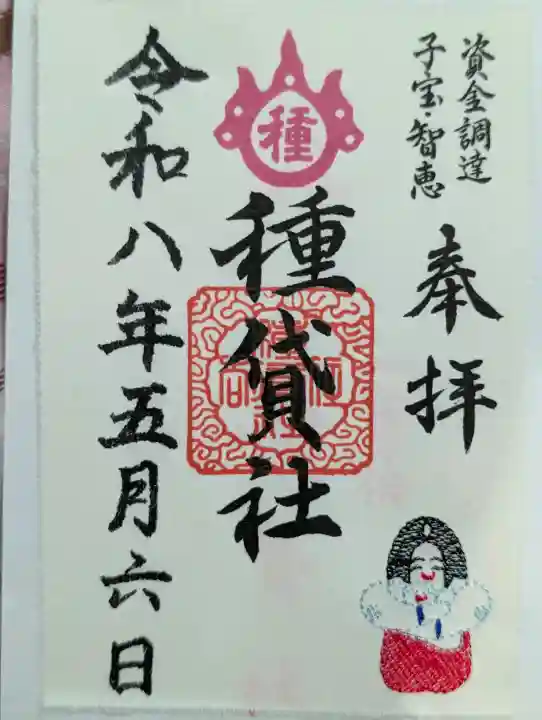 資金調達
子宝・智恵
奉拝
種
種貸社
令和八年五月六日